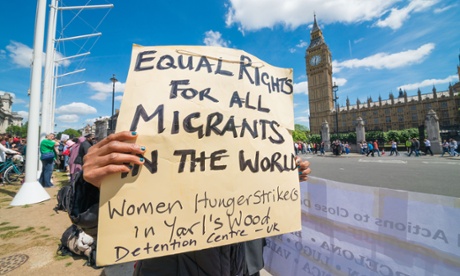 EQUAL RIGHTS
FOR ALL
MIGRANTS
IN THE WORLD
Women HungerStrikers
in Yarl's Wood
Detention Centre - UK
Actions to Close